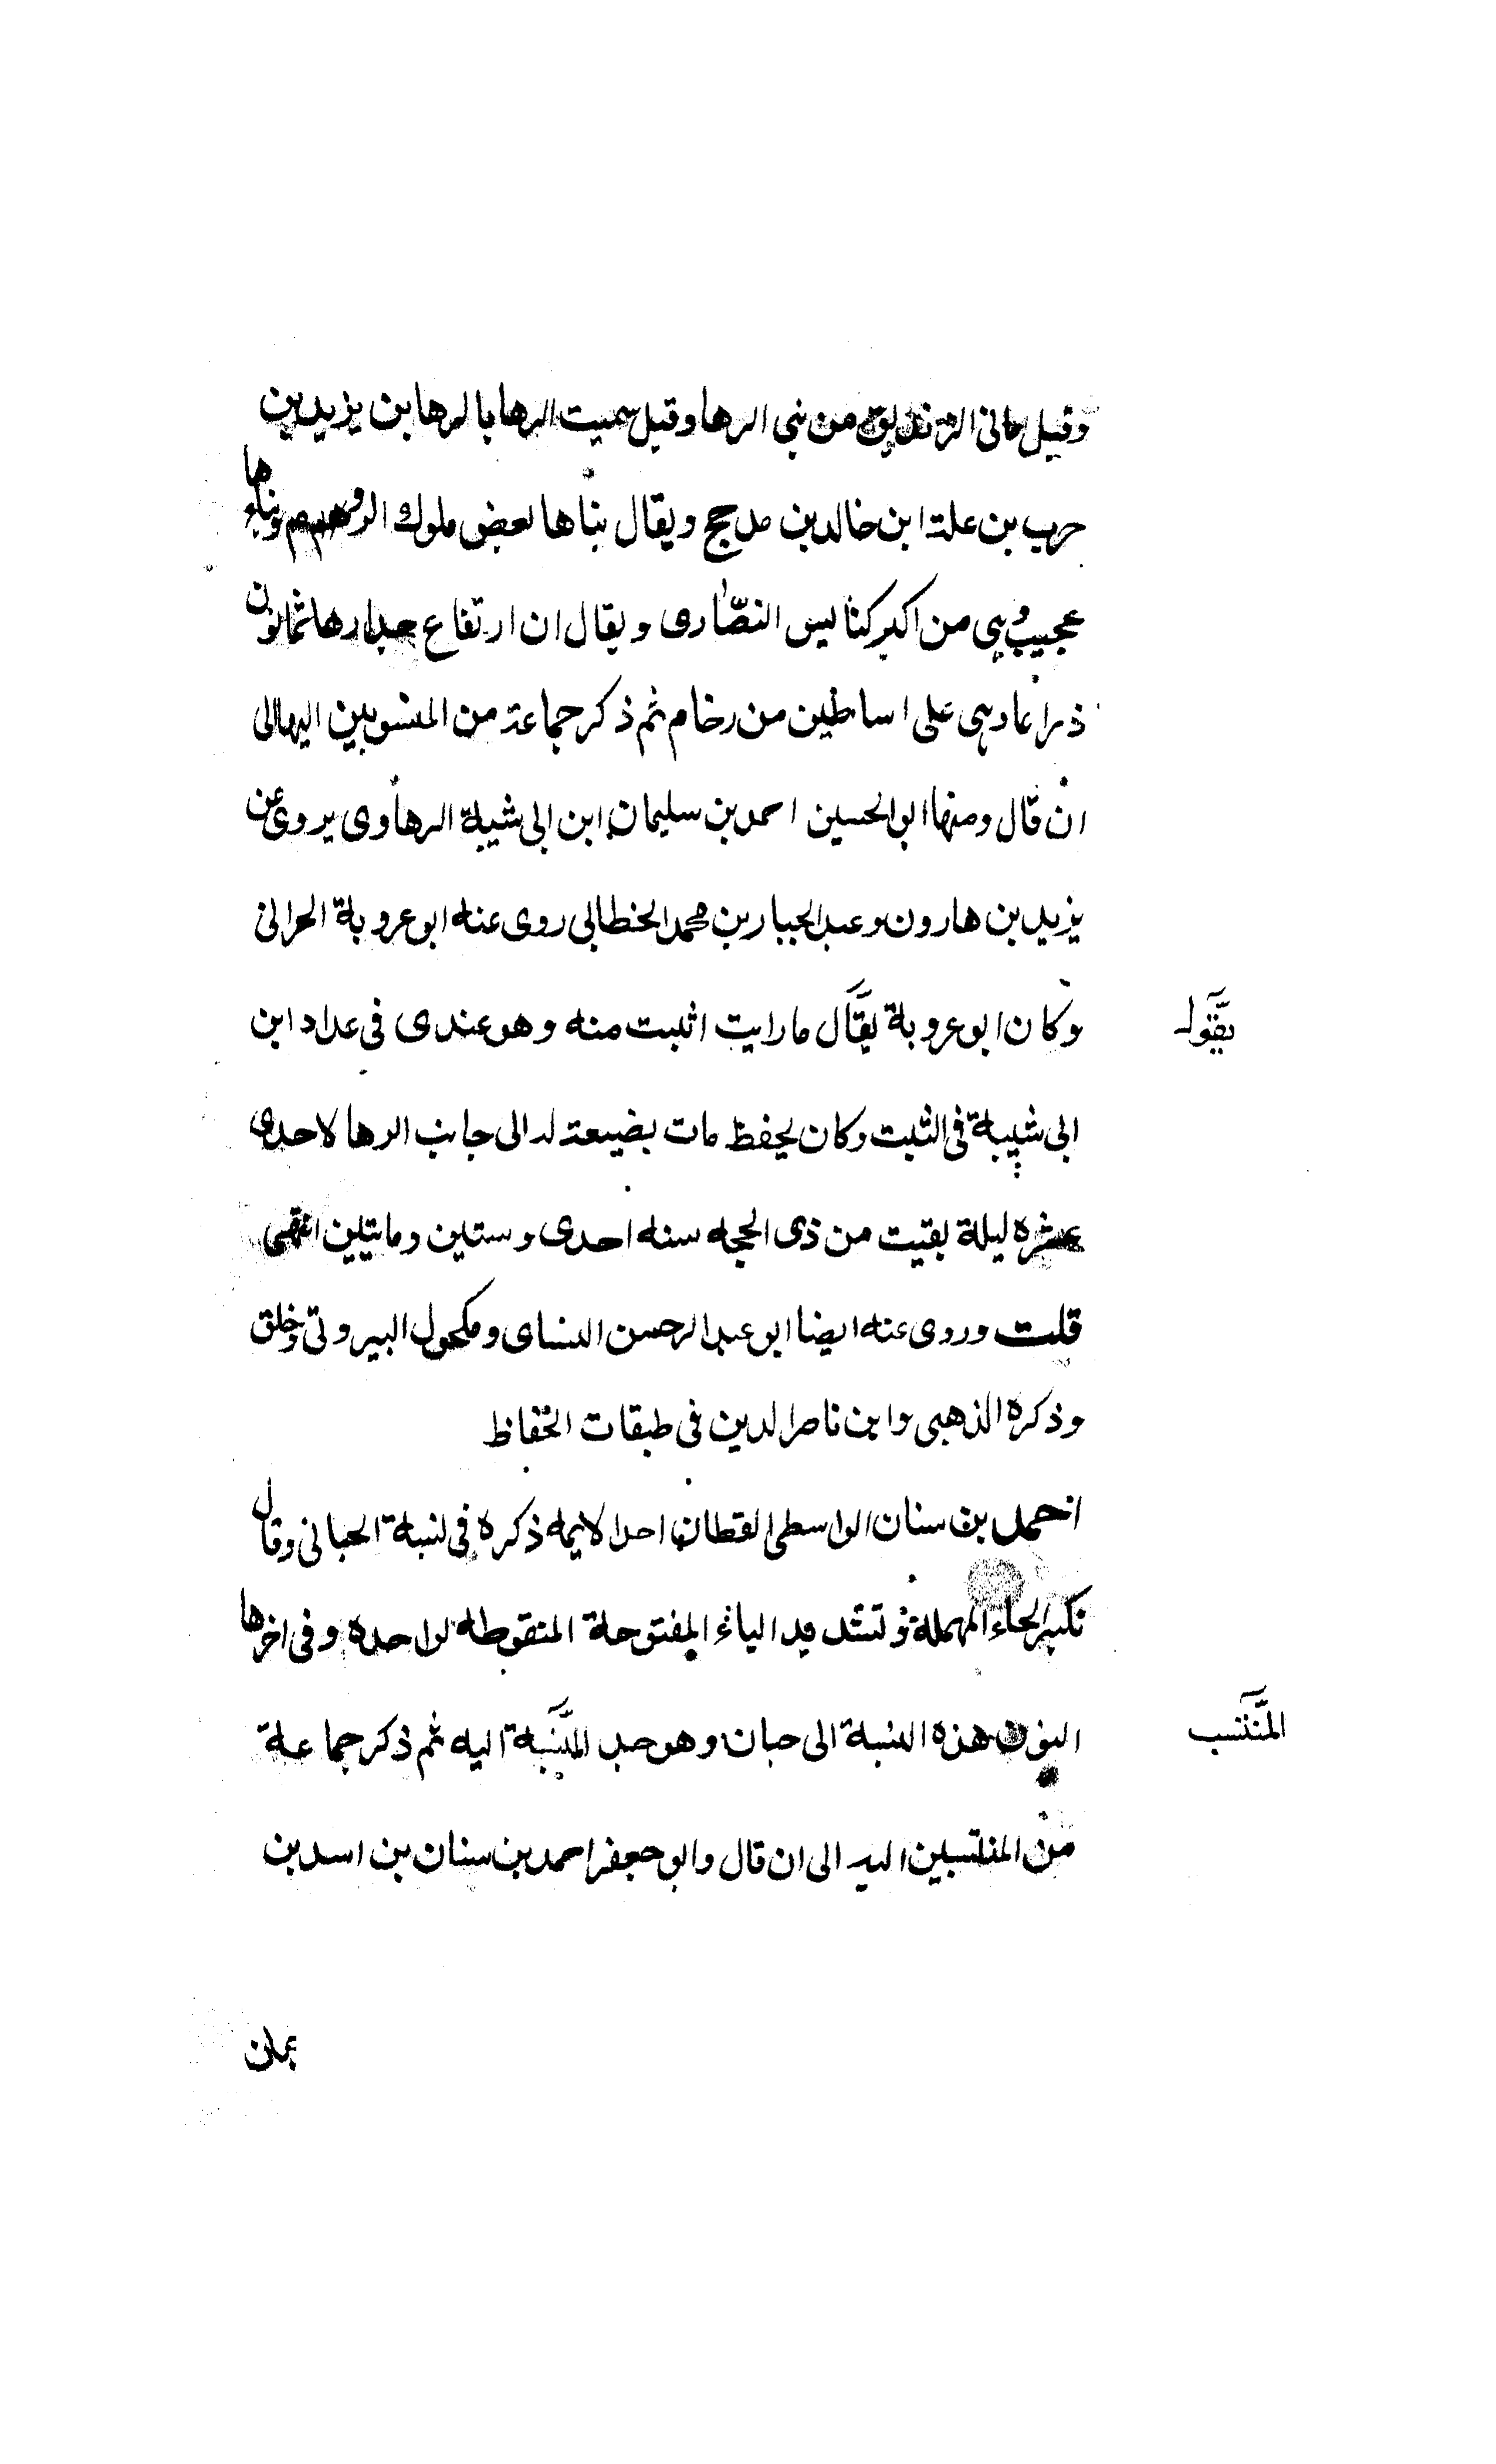 وقيل مانى الزنديق من بنى الرها وقيل سميت الرها بالرها بن يزيد بن
حرب بن علة ابن خالد بن مدحج ويقال بناها بعض ملوك الروم وبناءها
عجيب وهى من اكبر كنايس النصارى ويقال ان ارتفاع جدارها ثمانون
ذراعا وهى على اساطين من رخام ثم ذكر جماعة من المنسوبين اليها الى
ان قال ومنها ابو الحسين احمد بن سليمان ابن ابى شيبة الرهاوى يروى عن
يزيد بن هارون وعبد الجبار بن محمد الخطابى روى عنه ابو عروبة الحرانى
وكان ابو عروبة يقال ما رايت اثبت منه وهو عندى فى عداد ابن
يقول
ابى شيبة فى الثبت وكان يحفظ مات بضيعة له الى جانب الرها لاحدى
عشره ليلة بقيت من ذى الحجه سنه احدى وستين وماتين انتهى
قلت وروى عنه ايضا ابو عبد الرحمن النساى ومكحول البيروتى وخلق
وذكره الذهبى وابن ناصر الدين فى طبقات الحفاظ
احمد بن سنان الواسطى القطان احد الايمه ذكره فى نسبة الحبانى وقال
بكسر الحاء المهملة وتشديد الباء المفتوحة المنقوطه بواحدة وفى اخرها
النون هذه النسبة الى حبان وهو جد النسبة اليه ثم ذكر جماعة
المنتسب
من المنتسبين اليه الى ان قال وابو جعفر احمد بن سنان بن اسد بن